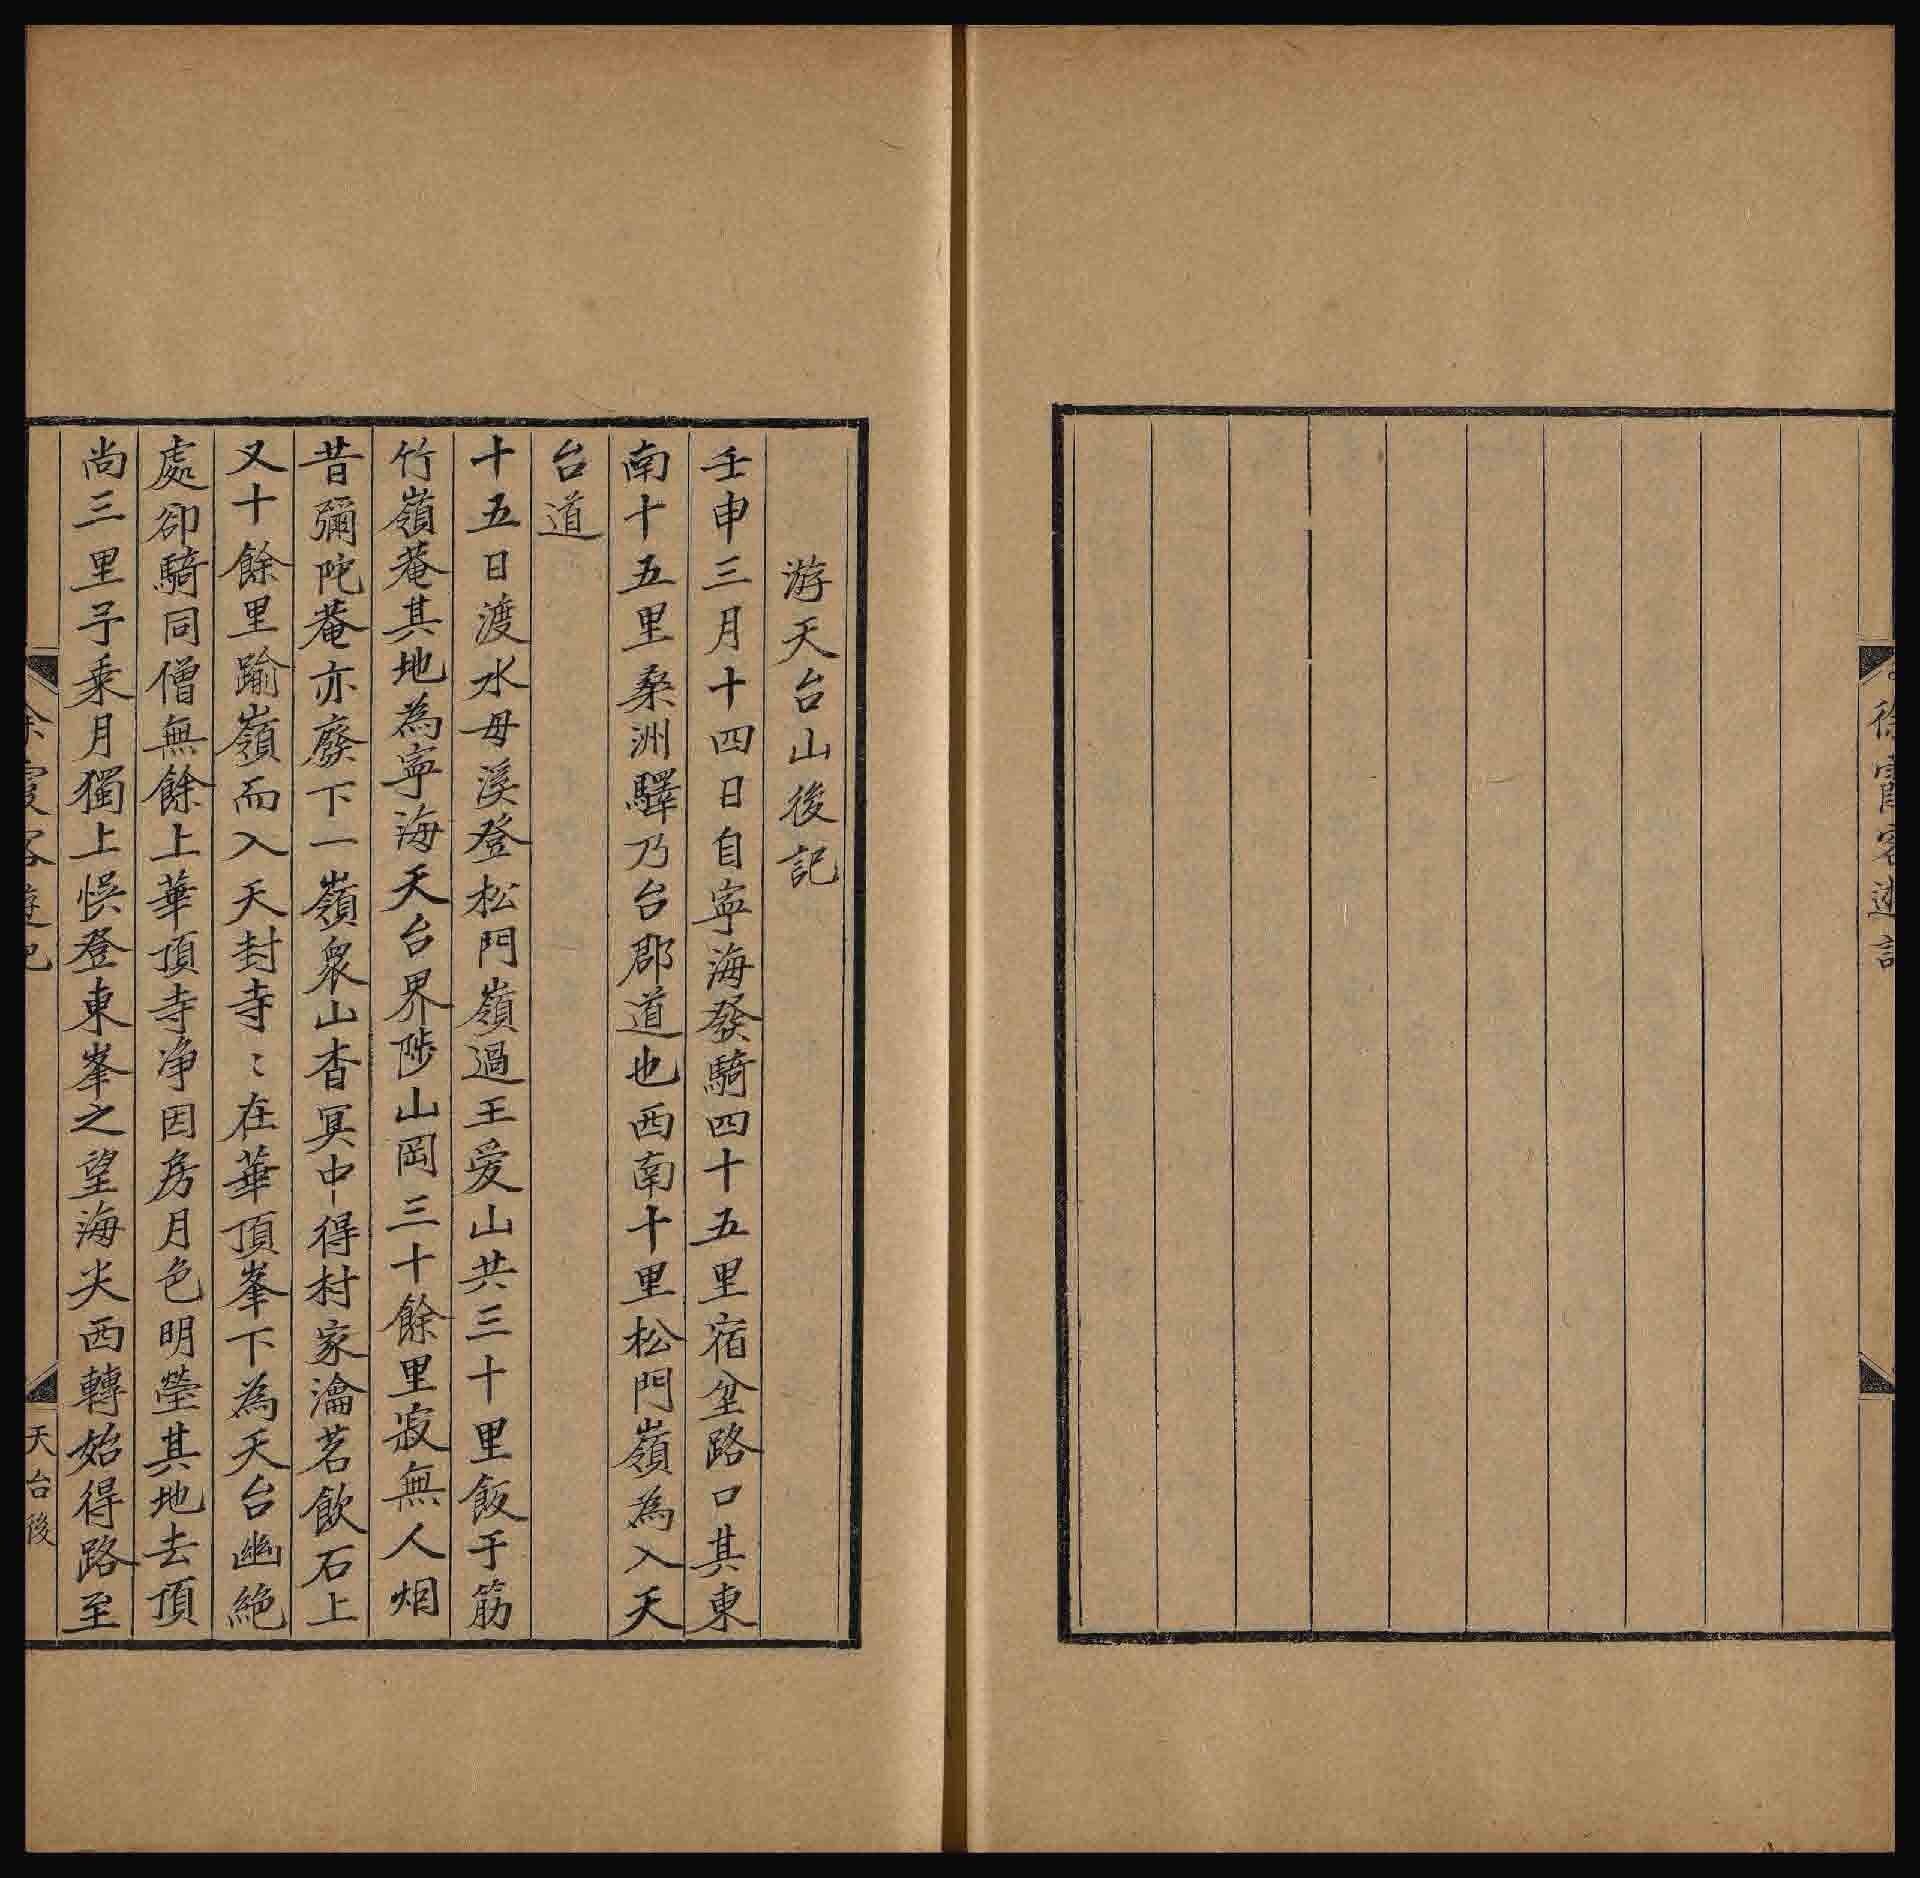 徐霞客遊記
游天台山後記
壬申三月十四日自寧海發騎四十五里宿坌路口其東
南十五里桑洲驛乃台郡道也西南十里松門嶺為入天
台道
十五日渡水母溪登松門嶺過王愛山共三十里飯于筋
竹嶺菴其地為寧海天台界陟山岡三十餘里寂無人烟
昔彌陀菴亦廢下一嶺衆山杳冥中得村家瀹茗飲石上
又十餘里踰嶺而入天封寺〻在華頂峯下為天台幽絶
處卻騎同僧無餘上華頂寺净因房月色明瑩其地去頂
尚三里予乗月獨上悞登東峯之望海尖西轉始得路至
徐霞客遊記
天台後